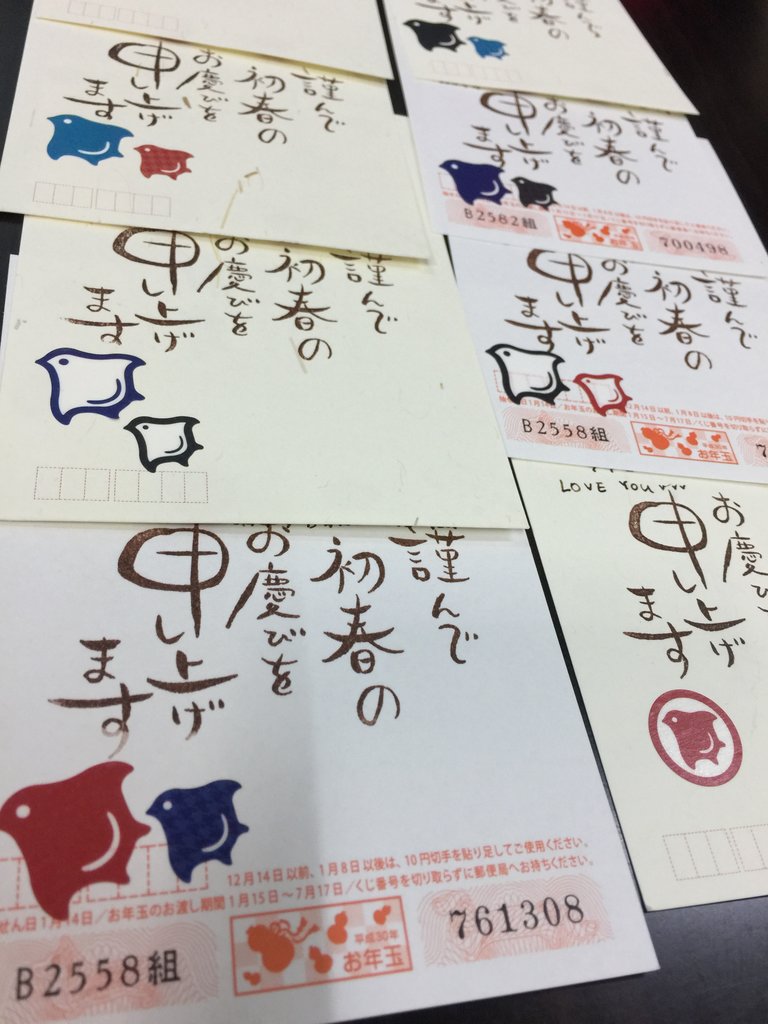 謹んで
初春の
お慶びを
申し上げ
ます
謹んで
初春の
お慶びを
申し上げ
ます
謹んで
初春の
お慶びを
申し上げ
ます
12月14日以前、1月8日以後は、10円切手を貼り足してご使用ください。
せん日1月14日/お年玉のお渡し期間1月15日~7月17日/くじ番号を切り取らずに郵便局へお持ちください。
B2558組
平成30年
お年玉
761308
んで
春の
申し上げ
ます
謹んで
初春の
お慶びを
申し上げ
ます
B2582組
お年玉
700498
謹んで
初春の
お慶びを
申し上げ
ます
12月14日以前、1月8日以後は、10円切手を貼
1月15日~7月17日/くじ番号を切り取らずに
B2558組
平成30年
お年玉
7
LOVE YOU
お慶び
申し上げ
ます